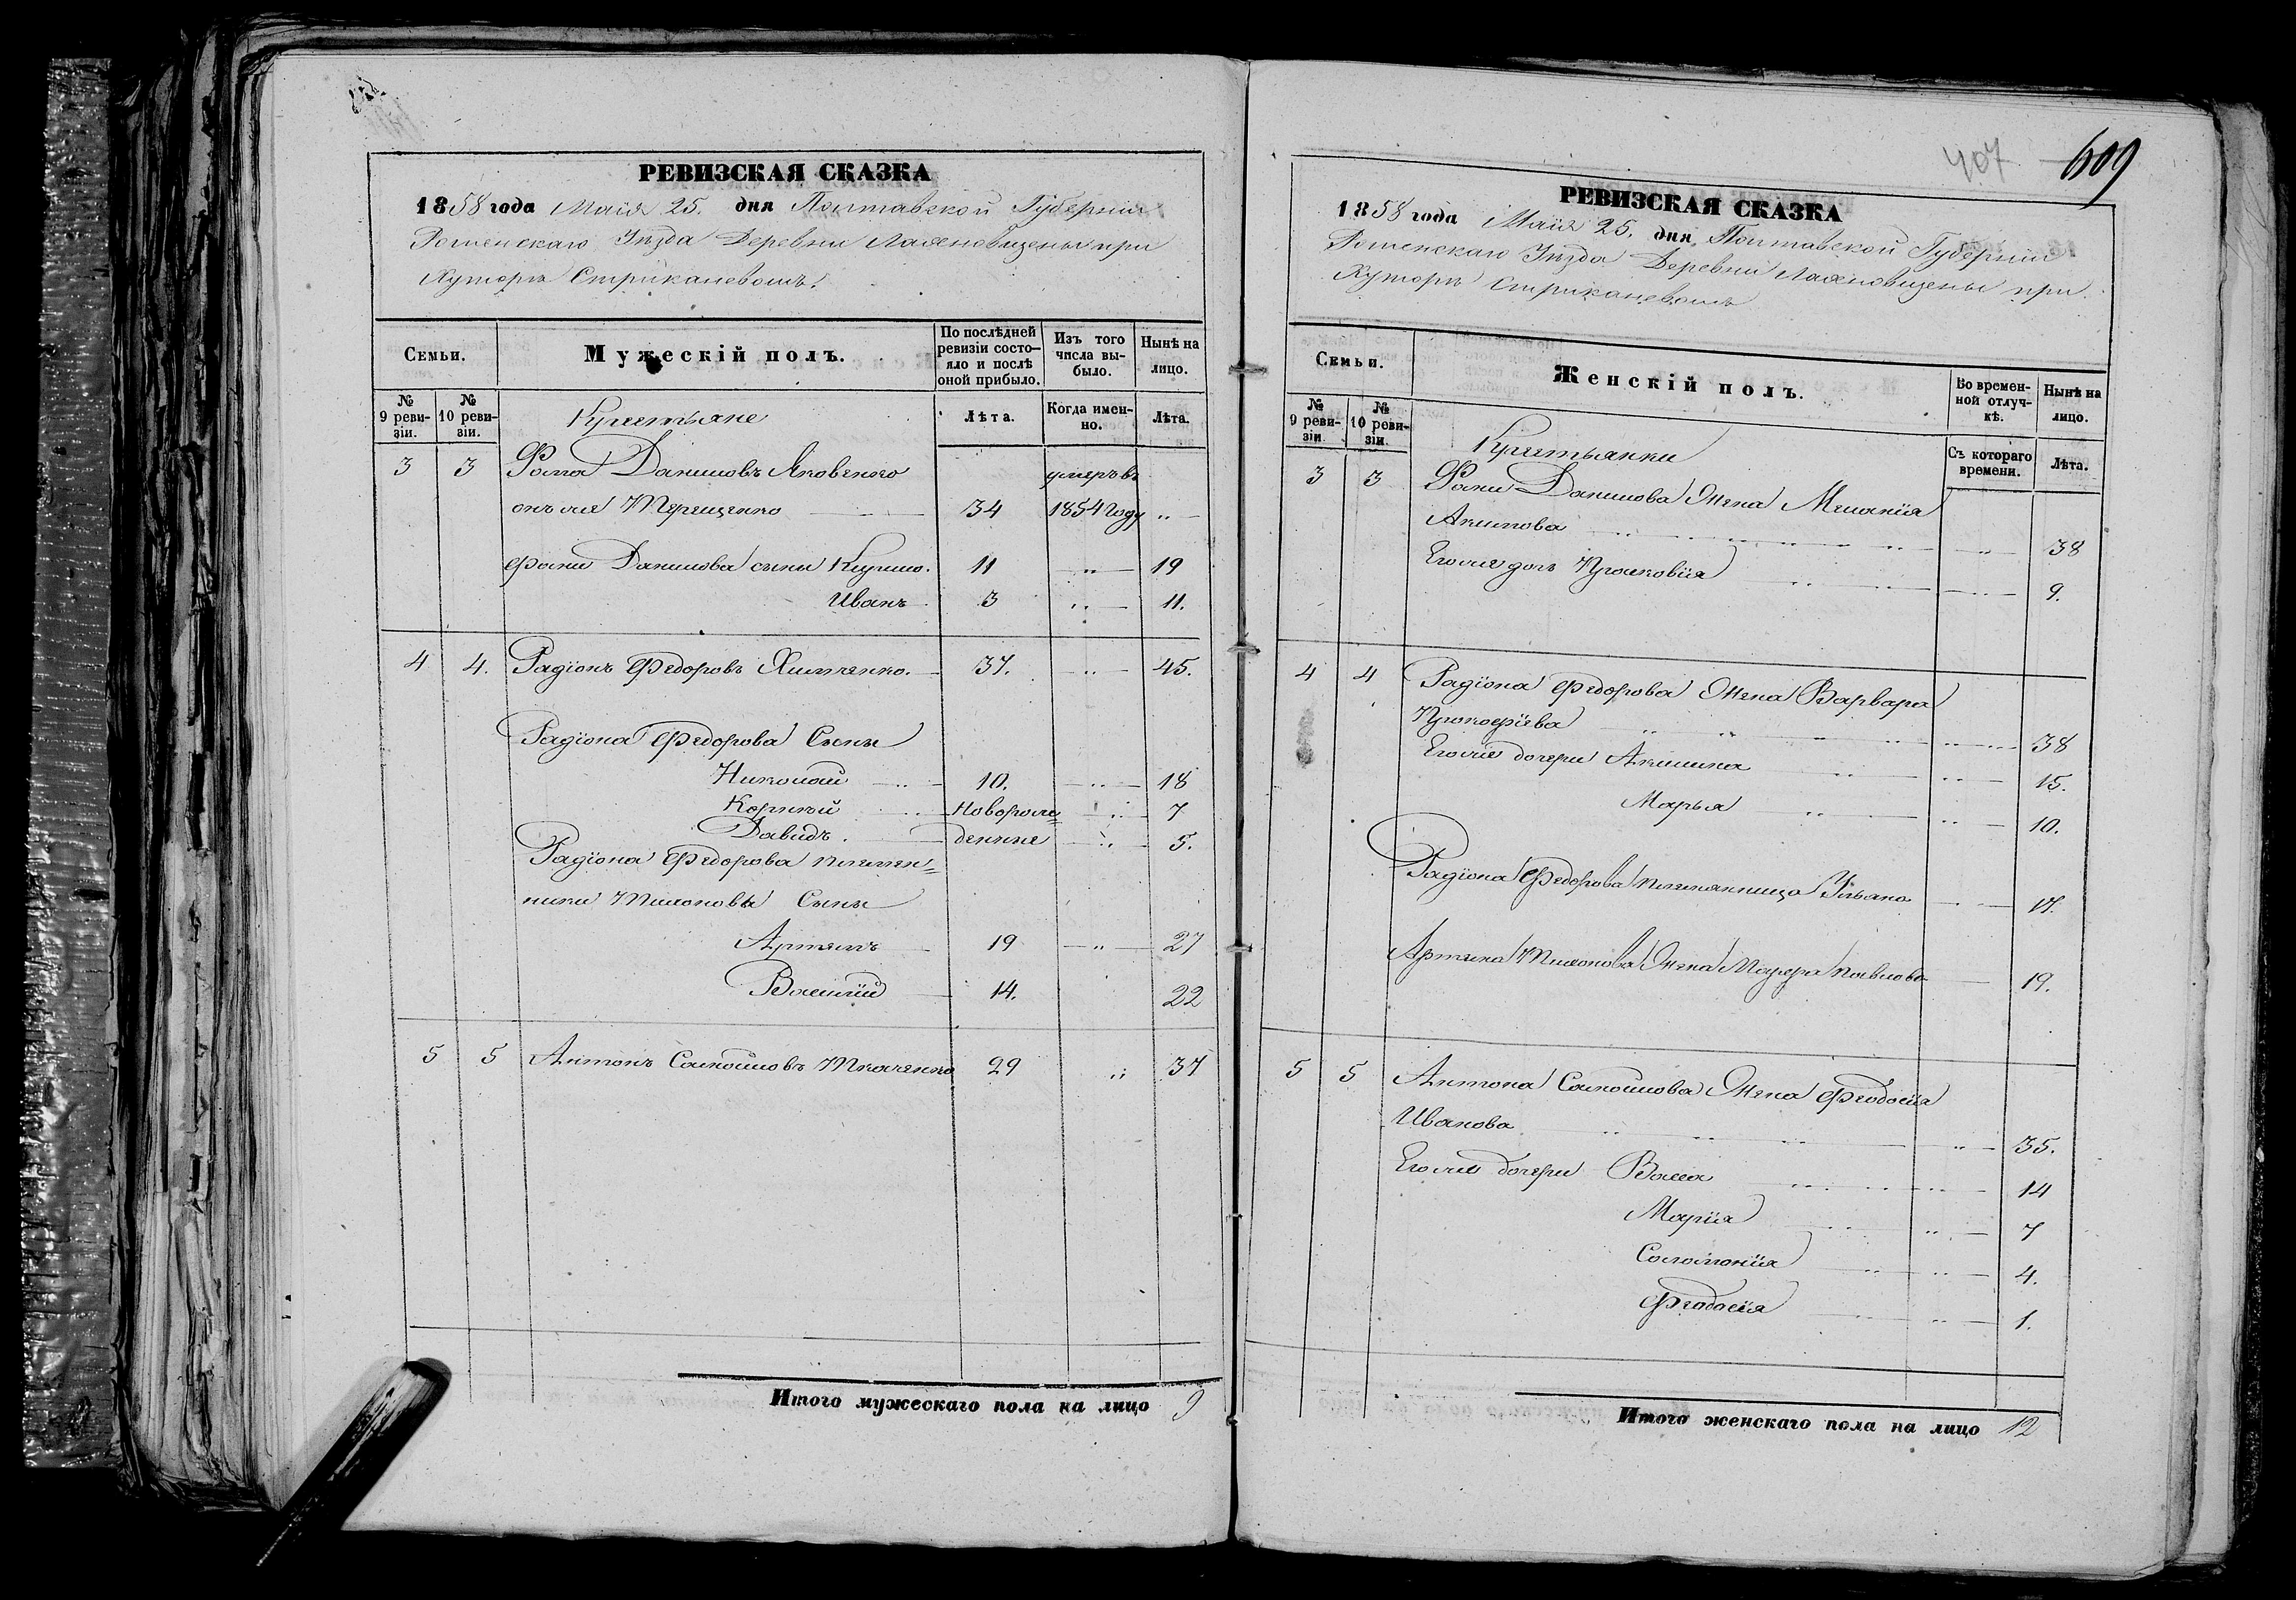 РЕВИЗСКАЯ СКАЗКА
1858 года Маія 25. дня Полтавской Губерніи
Роменскаго Уѣзда Деревни Лахновщены при
Хуторѣ Стрикачевомъ.
Семьи.
Мужескій полъ.
По послѣдней ревизіи состояло и послѣ оной прибыло.
Изъ того числа выбыло.
Нынѣ на лицо.
№ 9 ревизіи.
№ 10 ревизіи.
Крестьяне
Лѣта.
Когда именно.
Лѣта.
3 3 Фома Даниловъ Яковенко умеръ въ
онъ же Терещенко 34 1854 году „
Фомы Данилова сыны Кирило. 11 „ 19
Иванъ 3 „ 11.
4 4. Радіонъ Федоровъ Химченко. 37. „ 45.
Радіона Федорова Сыны
Николай 10. „ 18
Корнѣй Новорож= „ 7
Давидъ. денные „ 5.
Радіона Федорова племен=
ники Тихоновы Сыны
Артемъ 19 „ 27
Василій 14. 22
5 5 Антонъ Самойловъ Ткаченко 29 „ 37
Итого мужескаго пола на лицо 9
407 609
РЕВИЗСКАЯ СКАЗКА
1858 года Маія 25. дня Полтавской Губерніи
Роменскаго Уѣзда Деревни Лахновщены при
Хуторѣ Стрикачевомъ
Семьи.
Женскій полъ.
Во временной отлучкѣ.
Нынѣ на лицо.
№ 9 ревизіи.
№ 10 ревизіи.
Крестьянки
Съ котораго времени.
Лѣта.
3 3 Фомы Данилова Жена Меланія
Акимова „ 38
Его же дочь Прасковія „ 9.
4 4 Радіона Федорова Жена Варвара
Прокофіева „ 38
Его же дочери Акилина „ 15.
Марья „ 10.
Радіона Федорова племянница Ульяна 17.
Артема Тихонова Жена Мавра Павлова 19.
5 5 Антона Самойлова Жена Феодосія
Иванова „ 35.
Его же дочери Васса „ 14
Марія „ 7
Соломонія „ 4.
Феодосія „ 1.
Итого женскаго пола на лицо 12